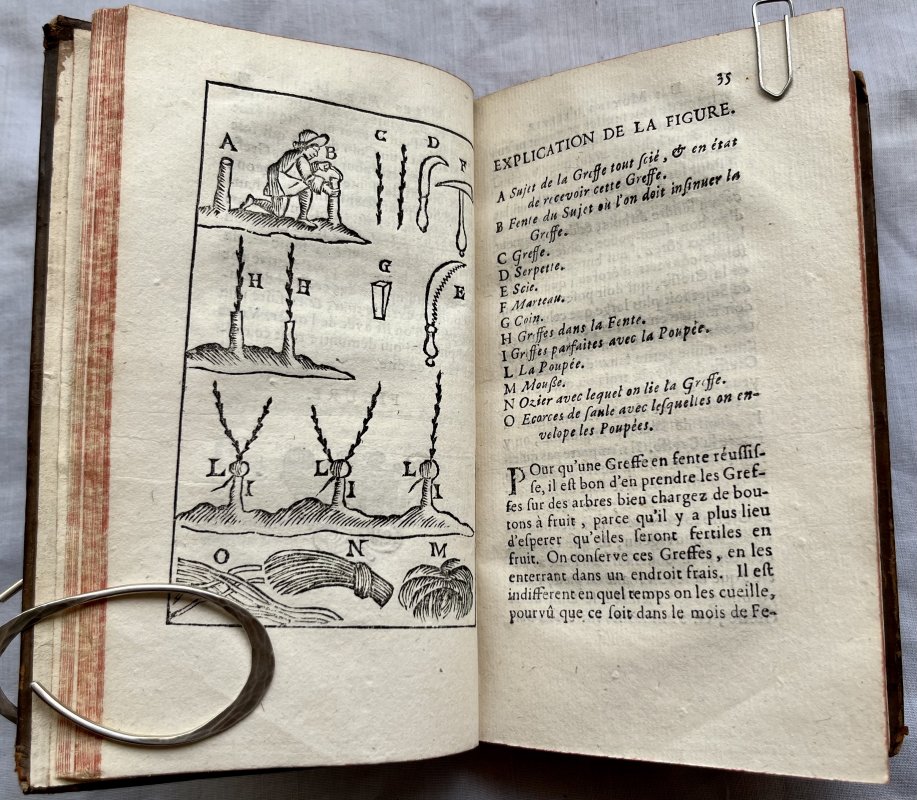 A
B
C
D
F
H
H
G
E
L
I
L
I
L
I
O
N
M
35
EXPLICATION DE LA FIGURE.
A Sujet de la Greffe tout ſcié, & en état
de recevoir cette Greffe.
B Fente du Sujet où l'on doit inſinuer la
Greffe.
C Greffe.
D Serpette.
E Scie.
F Marteau.
G Coin.
H Greffes dans la Fente.
I Greffes parfaites avec la Poupée.
L La Poupée.
M Mouſſe.
N Ozier avec lequel on lie la Greffe.
O Ecorces de ſaule avec leſquelles on en-
velope les Poupées.
POur qu'une Greffe en fente réuſſiſ-
ſe, il eſt bon d'en prendre les Gref-
fes ſur des arbres bien chargez de bou-
tons à fruit, parce qu'il y a plus lieu
d'eſperer qu'elles ſeront fertiles en
fruit. On conſerve ces Greffes, en les
enterrant dans un endroit frais. Il eſt
indifferent en quel temps on les cueille,
pourvû que ce ſoit dans le mois de Fe-